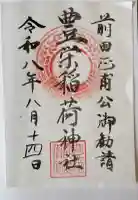 前田正甫公御勧請
豊栄稲荷神社
令和八年八月十四日